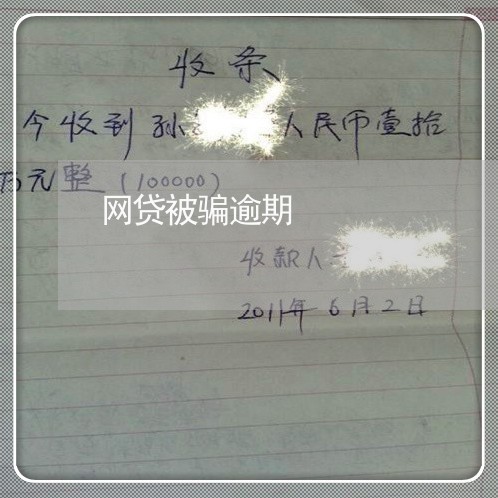 收条
今收到孙 人民币壹拾
万元整(100000)
网贷被骗逾期
收款人
2011年6月2日